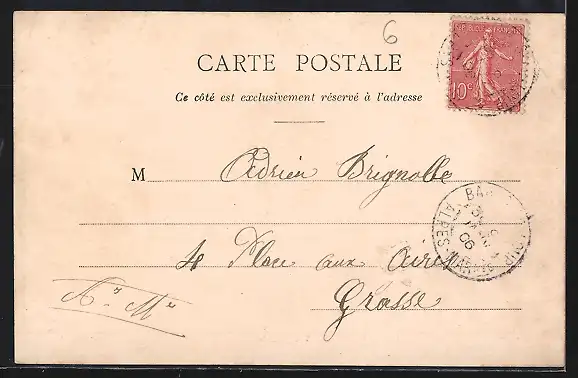 6
CARTE POSTALE
Ce côté est exclusivement réservé à l'adresse
REPUBLIQUE FRANÇAISE
10c
M Adrien Brignolle
BAR
ALPES
06
4 Place aux Aires
Grasse